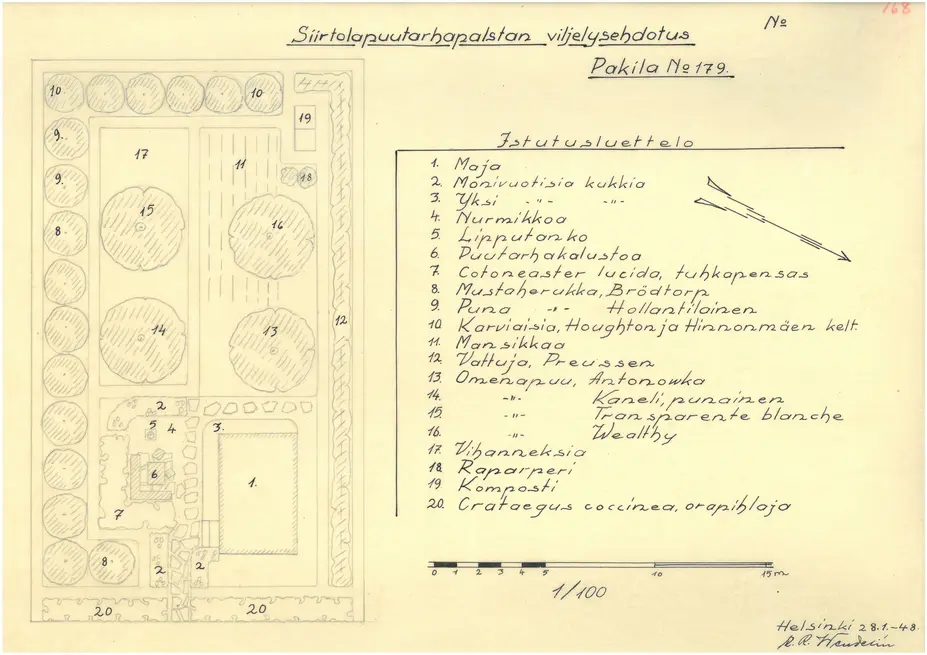 168
Nº
Siirtolapuutarhapalstan viljelysehdotus
Pakila Nº 179.
Istutusluettelo
1. Maja
2. Monivuotisia kukkia
3. Yksi -"- -"-
4. Nurmikkoa
5. Lipputanko
6. Puutarhakalustoa
7. Cotoneaster lucida, tuhkapensas
8. Mustaherukka, Brödtorp
9. Puna -"- Hollantilainen
10. Karviaisia, Houghton ja Hinnonmäen kelt.
11. Mansikkaa
12. Vattuja, Preussen
13. Omenapuu, Antonowka
14. -"- Kaneli, punainen
15. -"- Transparente blanche
16. -"- Wealthy
17. Vihanneksia
18. Raparperi
19. Komposti
20. Crataegus coccinea, orapihlaja
10 10
19
9.
17
11
9.
18
15
8.
16
12
14
13
2
5
4
3.
6
1.
7
8.
2
2
20
20
0 1 2 3 4 5 10 15 m
1/100
Helsinki 28.1.-48.